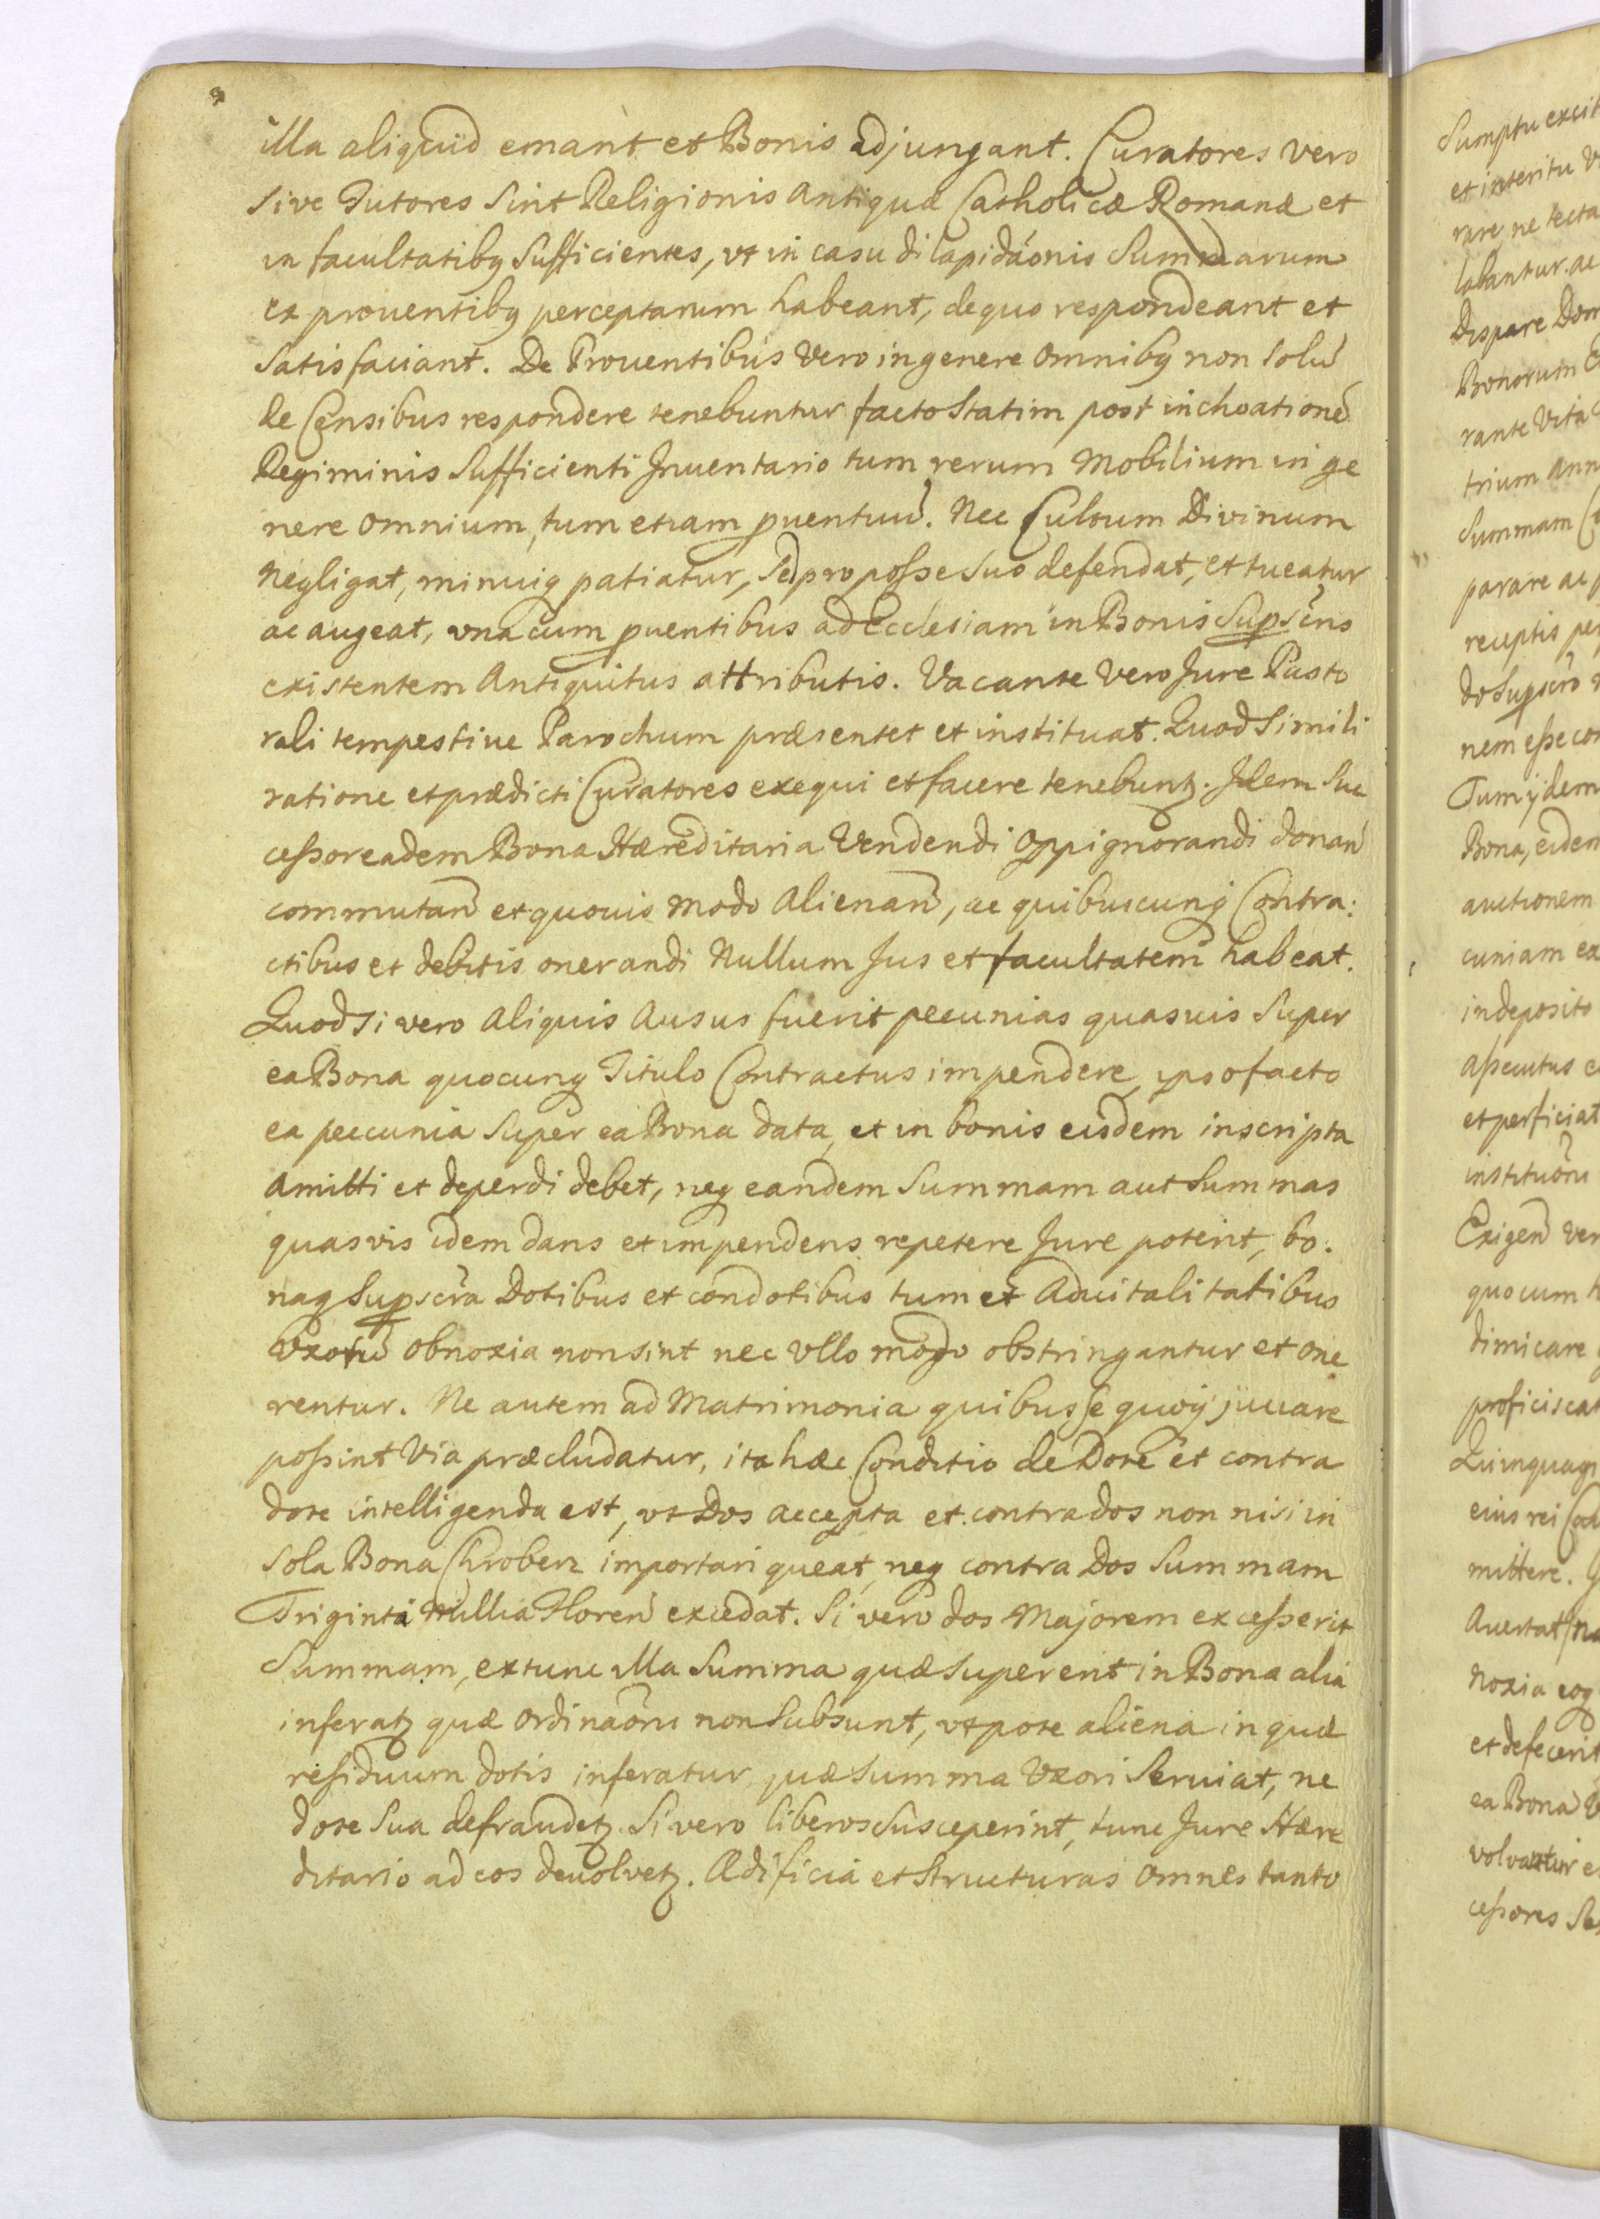 illa aliquid emant et Bonis adjungant. Curatores vero
sive Tutores sint Religionis Antiquæ Catholicæ Romanæ et
in facultatibq sufficientes, vt in casu dilapidãonis summarum
ex prouentibq perceptarum habeant, de quo respondeant et
satisfaciant. De Prouentibus vero in genere omnibq non solũ
de Censibus respondere tenebuntur facto statim post inchoationẽ
Regiminis sufficienti Inuentario tum rerum Mobilium in ge
nere omnium, tum etiam puentuũ. Nec Cultum Divinum
negligat, minuiq patiatur, sed pro posse suo defendat, et tueatur
ac augeat, vna cum puentibus ad Ecclesiam in Bonis supscrĩs
existentem Antiquitus attributis. Vacante vero Jure Pasto
rali tempestiue Parochum præsentet et instituat. Quod simili
ratione et prædicti Curatores exequi et facere tenebuntꝫ. Idem suc
cessor eadem Bona Hæreditaria Vendendi oppignorandi donañ
commutañ et quouis modo Alienañ, ac quibuscunq Contra:
ctibus et debitis onerandi Nullum Jus et facultatem habeat.
Quod si vero Aliquis Ausus fuerit pecunias quasuis super
ea Bona quocunq Titulo Contractus impendere, ipso facto
ea peccunia super ea Bona data, et in bonis eisdem inscripta
Amitti et deperdi debet, neq eandem summam aut summas
quasvis idem dans et impendens repetere Jure poterit, bo:
naq supscrã Dotibus et condotibus tum et Aduitalitatibus
Vxorũ obnoxia non sint nec vllo modo obstringantur et one
rentur. Ne autem ad Matrimonia quibus se quoq juuare
possint Via præcludatur, ita hæc Conditio de Dote et contra
dote intelligenda est, vt Dos accepta et contrados non nisi in
sola Bona Chroberz importari queat, neq contra Dos summam
Triginta Millia Floreñ excedat. Si vero dos Majorem excesserit
summam, ex tunc illa summa quæ superent in Bona alia
inferatꝫ quæ ordinaõni non subsunt, vt pote aliena in quæ
residuum dotis inferatur, quæ summa Vxori seruiat, ne
dote sua defraudetꝫ. Si vero liberos susceperint, tunc Jure Hære
ditario ad eos deuolvetꝫ. Ædificia et structuras omnes tanto